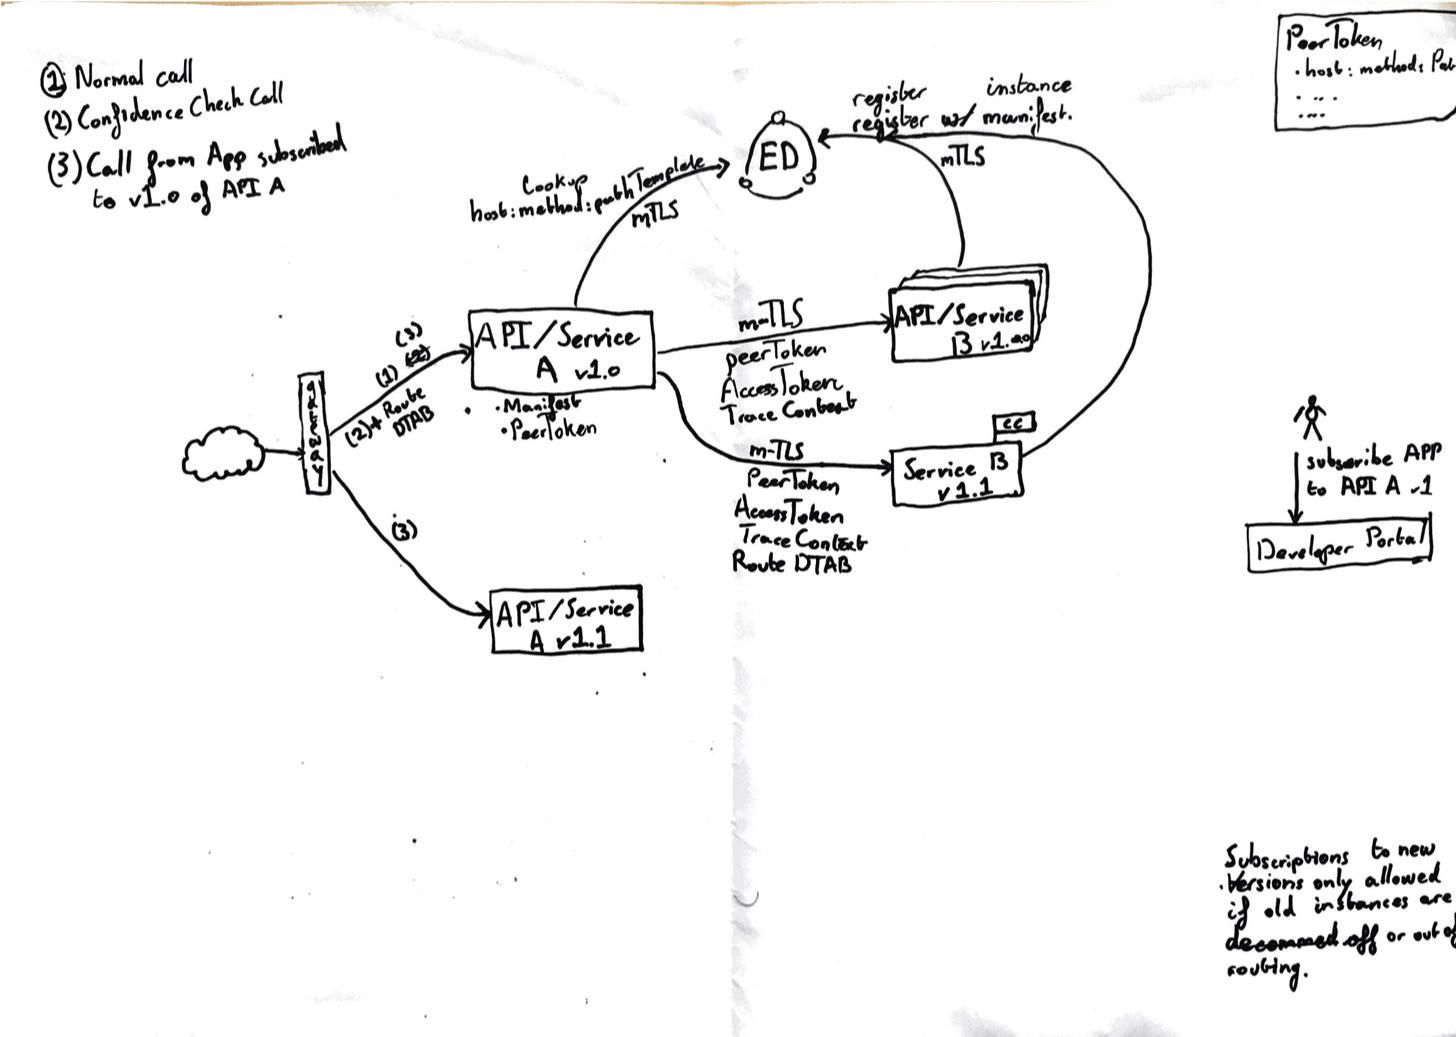 (1) Normal call
(2) Confidence Check Call
(3) Call from App subscribed
to v1.0 of API A
PeerToken
. host: method: Pat
. ....
....
register instance
register w/ manifest.
mTLS
ED
Lookup
host:method:pathTemplate
mTLS
API/Service
A v1.0
. Manifest
. PeerToken
(3)
(1)
(2)+ Route
DTAB
GATEWAY
m-TLS
peerToken
AccessToken
Trace Context
API/Service
B
m-TLS
PeerToken
AccessToken
Trace Context
Route DTAB
CC
Service B
v1.1
(3)
API/Service
A v1.1
subscribe APP
to API A v1
Developer Portal
Subscriptions to new
. Versions only allowed
if old instances are
decommed off or out of
routing.